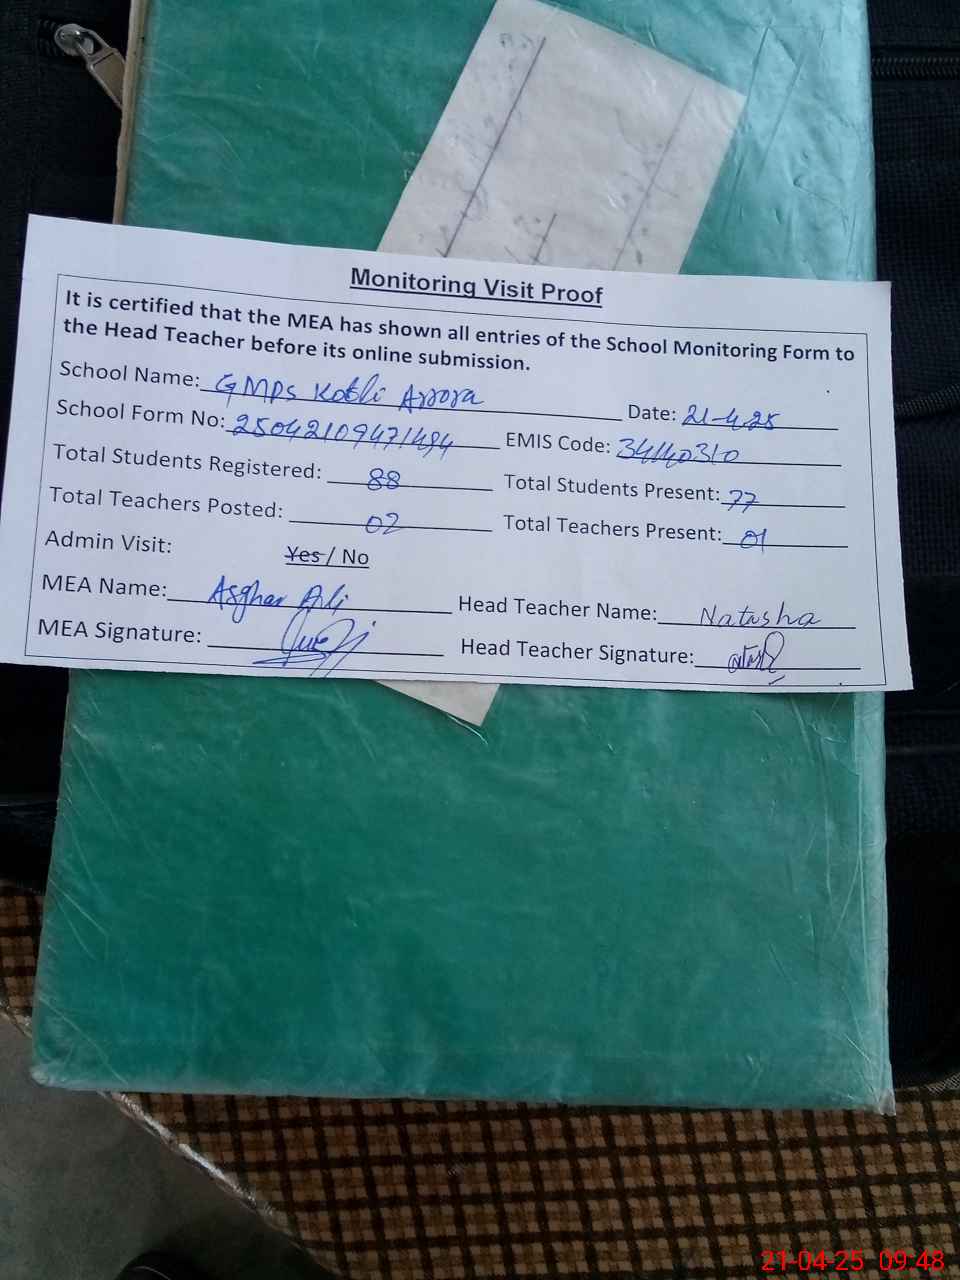 Monitoring Visit Proof
It is certified that the MEA has shown all entries of the School Monitoring Form to
the Head Teacher before its online submission.
School Name: GMPS Kotli Arrora Date: 21-4-25
School Form No: 25042109471494 EMIS Code: 34140310
Total Students Registered: 88 Total Students Present: 77
Total Teachers Posted: 02 Total Teachers Present: 01
Admin Visit: Yes / No
MEA Name: Asghar Ali Head Teacher Name: Natasha
MEA Signature: Head Teacher Signature:
21-04-25 09:48